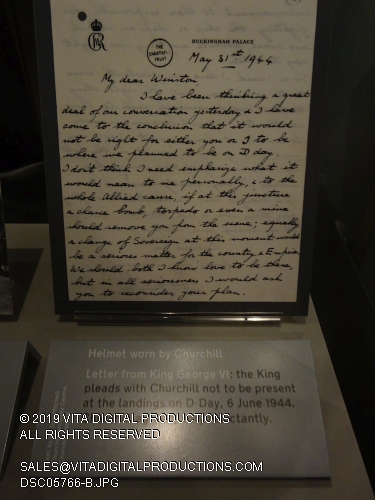 THE
CHARTWELL
TRUST
BUCKINGHAM PALACE
May 31st 1944
My dear Winston
I have been thinking a great
deal of our conversation yesterday & I have
come to the conclusion that it would
not be right for either you or I to be
where we planned to be on D day.
I don't think I need emphasize what it
would mean to me personally, & to the
whole Allied cause, if at this juncture
a chance bomb, torpedo or even a mine
should remove you from the scene; equally
a change of Sovereign at this moment would
be a serious matter for the country & Empire.
We should both I know love to be there,
but in all seriousness I would ask
you to reconsider your plan.
Helmet worn by Churchill
Letter from King George VI: the King
pleads with Churchill not to be present
at the landings on D-Day, 6 June 1944.
ctantly.
© 2019 VITA DIGITAL PRODUCTIONS
ALL RIGHTS RESERVED
SALES@VITADIGITALPRODUCTIONS.COM
DSC05766-B.JPG